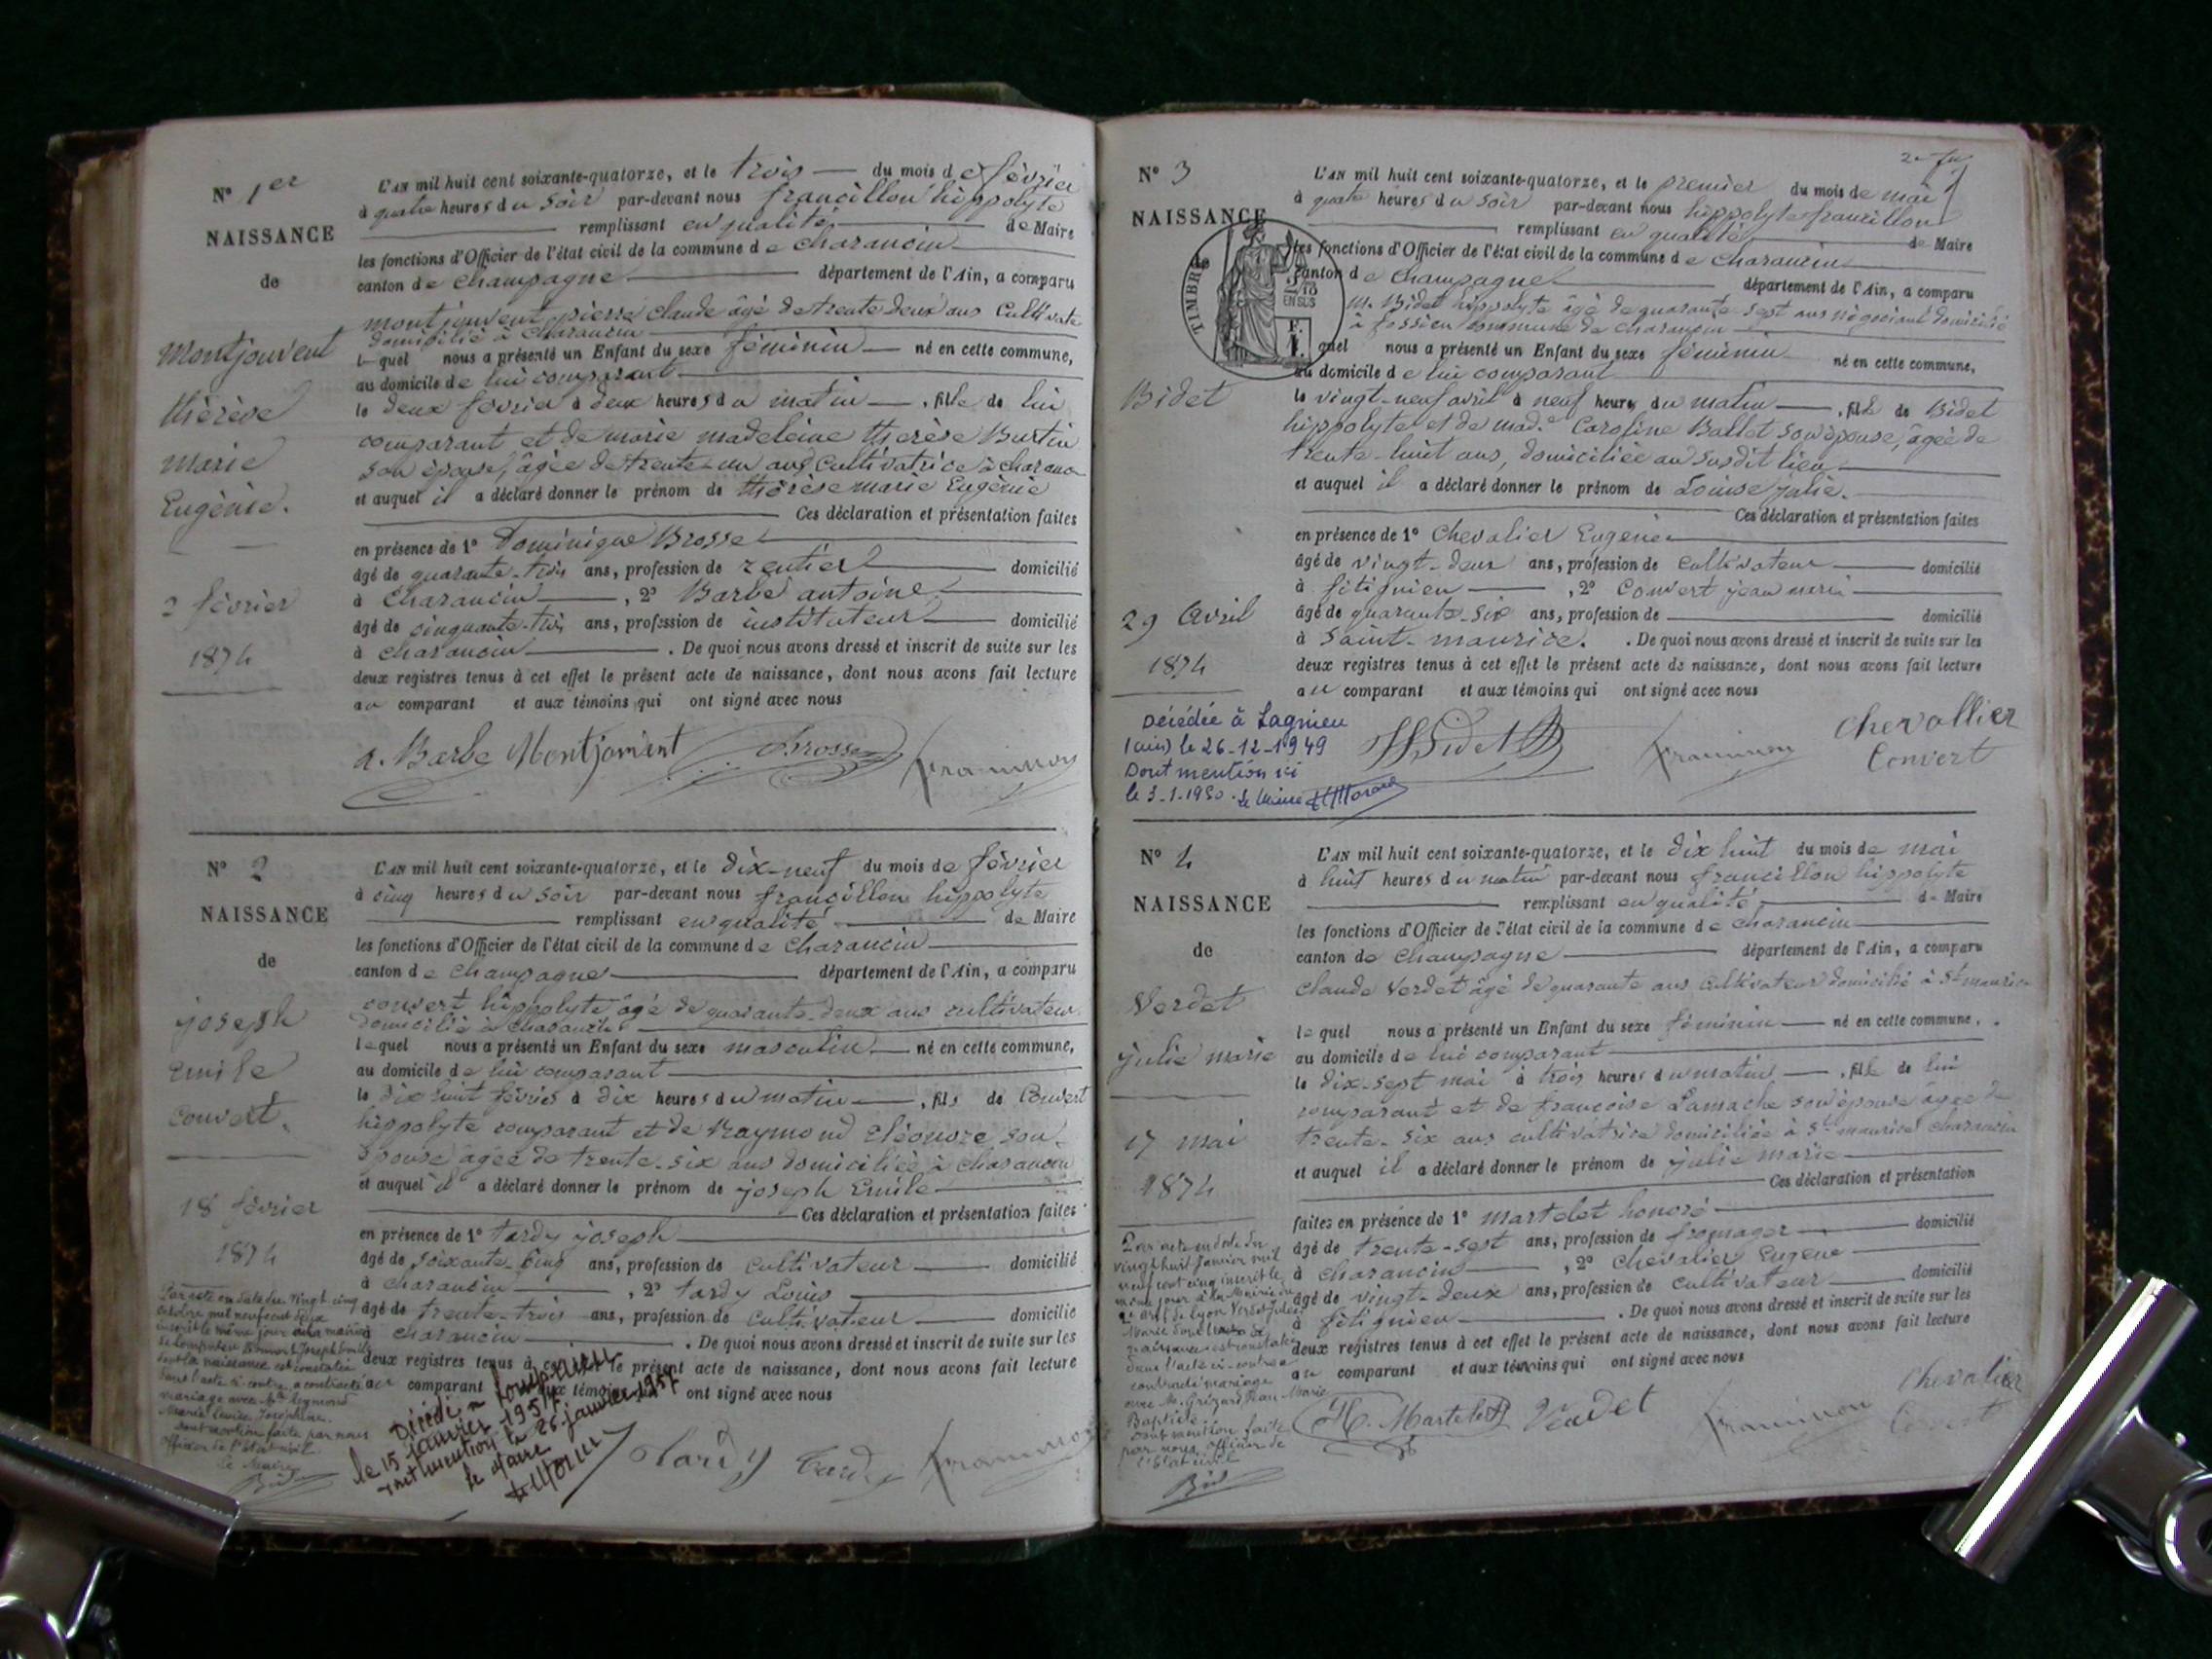 N° 1er
NAISSANCE
de
Montjouvent
thérèse
marie
Eugénie.
2 février
1874
L'AN mil huit cent soixante-quatorze, et le trois du mois de février
à quatre heures du soir par-devant nous francillon hippolyte
remplissant en qualité de Maire
les fonctions d'Officier de l'état civil de la commune de charancin
canton de champagne département de l'Ain, a comparu
montjouvent pierre claude âgé de trente deux ans Cultivate
domicilié à charancin
lequel nous a présenté un Enfant du sexe féminin né en cette commune,
au domicile de lui comparant
le deux février à deux heures du matin , fille de lui
comparant et de marie madeleine thérèse Burtin
son épouse, âgée de trente-un ans Cultivatrice à charanc
et auquel il a déclaré donner le prénom de thérèse marie Eugénie
Ces déclaration et présentation faites
en présence de 1° Dominique Brosse
âgé de quarante-trois ans, profession de rentier domicilié
à Charancin , 2° Barbe antoine
âgé de cinquante-trois ans, profession de instituteur domicilié
à charancin . De quoi nous avons dressé et inscrit de suite sur les
deux registres tenus à cet effet le présent acte de naissance, dont nous avons fait lecture
au comparant et aux témoins qui ont signé avec nous
a. Barbe Montjouvent Brosse francillon
N° 2
NAISSANCE
de
joseph
Emile
convert.
18 février
1874
Par acte en date du vingt cinq
octobre mil neuf cent
inscrit le même jour à la mairie
de Convert Joseph Emile
dont la naissance est constatée
dans l'acte ci-contre, a contracté
mariage avec Mlle Reymond
Marie Louise Joséphine.
Dont mention faite par nous
officier de l'état civil.
Le Maire
L'AN mil huit cent soixante-quatorze, et le dix-neuf du mois de février
à cinq heures du soir par-devant nous francillon hippolyte
remplissant en qualité de Maire
les fonctions d'Officier de l'état civil de la commune de charancin
canton de champagne département de l'Ain, a comparu
convert hippolyte âgé de quarante-deux ans cultivateur
domicilié à charancin
lequel nous a présenté un Enfant du sexe masculin né en cette commune,
au domicile de lui comparant
le dix huit février à dix heures du matin , fils de Convert
hippolyte comparant et de Raymond Eléonore son
Epouse âgée de trente-six ans domiciliée à charancin
et auquel il a déclaré donner le prénom de joseph Emile
Ces déclaration et présentation faites
en présence de 1° tardy joseph
âgé de soixante-cinq ans, profession de cultivateur domicilié
à charancin , 2° tardy Louis
âgé de trente-trois ans, profession de cultivateur domicilié
à charancin . De quoi nous avons dressé et inscrit de suite sur les
deux registres tenus à cet effet le présent acte de naissance, dont nous avons fait lecture
au comparant et aux témoins qui ont signé avec nous
Décédé à
le 15 janvier 1957
dont mention le 26 janvier 1957
le Maire
tardy tardy francillon
2e
N° 3
NAISSANCE
TIMBRE
Bidet
29 Avril
1874
L'AN mil huit cent soixante-quatorze, et le premier du mois de mai
à quatre heures du soir par-devant nous hippolyte francillon
remplissant en qualité de Maire
les fonctions d'Officier de l'état civil de la commune de charancin
canton de champagne département de l'Ain, a comparu
M. Bidet hippolyte âgé de quarante-sept ans négociant domicilié
à fossieu commune de charancin
quel nous a présenté un Enfant du sexe féminin né en cette commune,
au domicile de lui comparant
le vingt-neuf avril à neuf heures du matin , fille de Bidet
hippolyte et de mad.e Caroline Ballet son épouse, âgée de
trente-huit ans, domiciliée au susdit lieu
et auquel il a déclaré donner le prénom de Louise julie.
Ces déclaration et présentation faites
en présence de 1° Chevalier Eugène
âgé de vingt-deux ans, profession de cultivateur domicilié
à fitignieu , 2° Convert jean marie
âgé de quarante-six ans, profession de domicilié
à Saint-maurice. . De quoi nous avons dressé et inscrit de suite sur les
deux registres tenus à cet effet le présent acte de naissance, dont nous avons fait lecture
au comparant et aux témoins qui ont signé avec nous
Décédée à Lagnieu
(ain) le 26-12-1949
Dont mention ici
le 3-1-1950. Le Maire
H Bidet francillon Chevallier
Convert
N° 4
NAISSANCE
de
Verdet
julie marie
17 mai
1874
Par acte en date du
vingt huit janvier mil
neuf cent cinq inscrit le
même jour à la Mairie du
2e arrt de Lyon Verdet Julie
Marie dont la
naissance est constatée
dans l'acte ci-contre a
contracté mariage
avec M. Grizard Jean-Marie
Baptiste.
Dont mention faite
par nous, officier de
l'état civil
L'AN mil huit cent soixante-quatorze, et le dix huit du mois de mai
à huit heures du matin par-devant nous francillon hippolyte
remplissant en qualité de Maire
les fonctions d'Officier de l'état civil de la commune de charancin
canton de champagne département de l'Ain, a comparu
claude Verdet âgé de quarante ans cultivateur domicilié à St maurice
lequel nous a présenté un Enfant du sexe féminin né en cette commune,
au domicile de lui comparant
le dix-sept mai à trois heures du matin , fille de lui
comparant et de françoise Lamache son épouse âgée de
trente-six ans cultivatrice domiciliée à St maurice charancin
et auquel il a déclaré donner le prénom de julie marie
Ces déclaration et présentation
faites en présence de 1° martelet honoré
âgé de trente-sept ans, profession de fromager domicilié
à charancin , 2° Chevalier Eugène
âgé de vingt-deux ans, profession de cultivateur domicilié
à fitignieu . De quoi nous avons dressé et inscrit de suite sur les
deux registres tenus à cet effet le présent acte de naissance, dont nous avons fait lecture
au comparant et aux témoins qui ont signé avec nous
H. Martelet Verdet francillon Chevalier
Convert